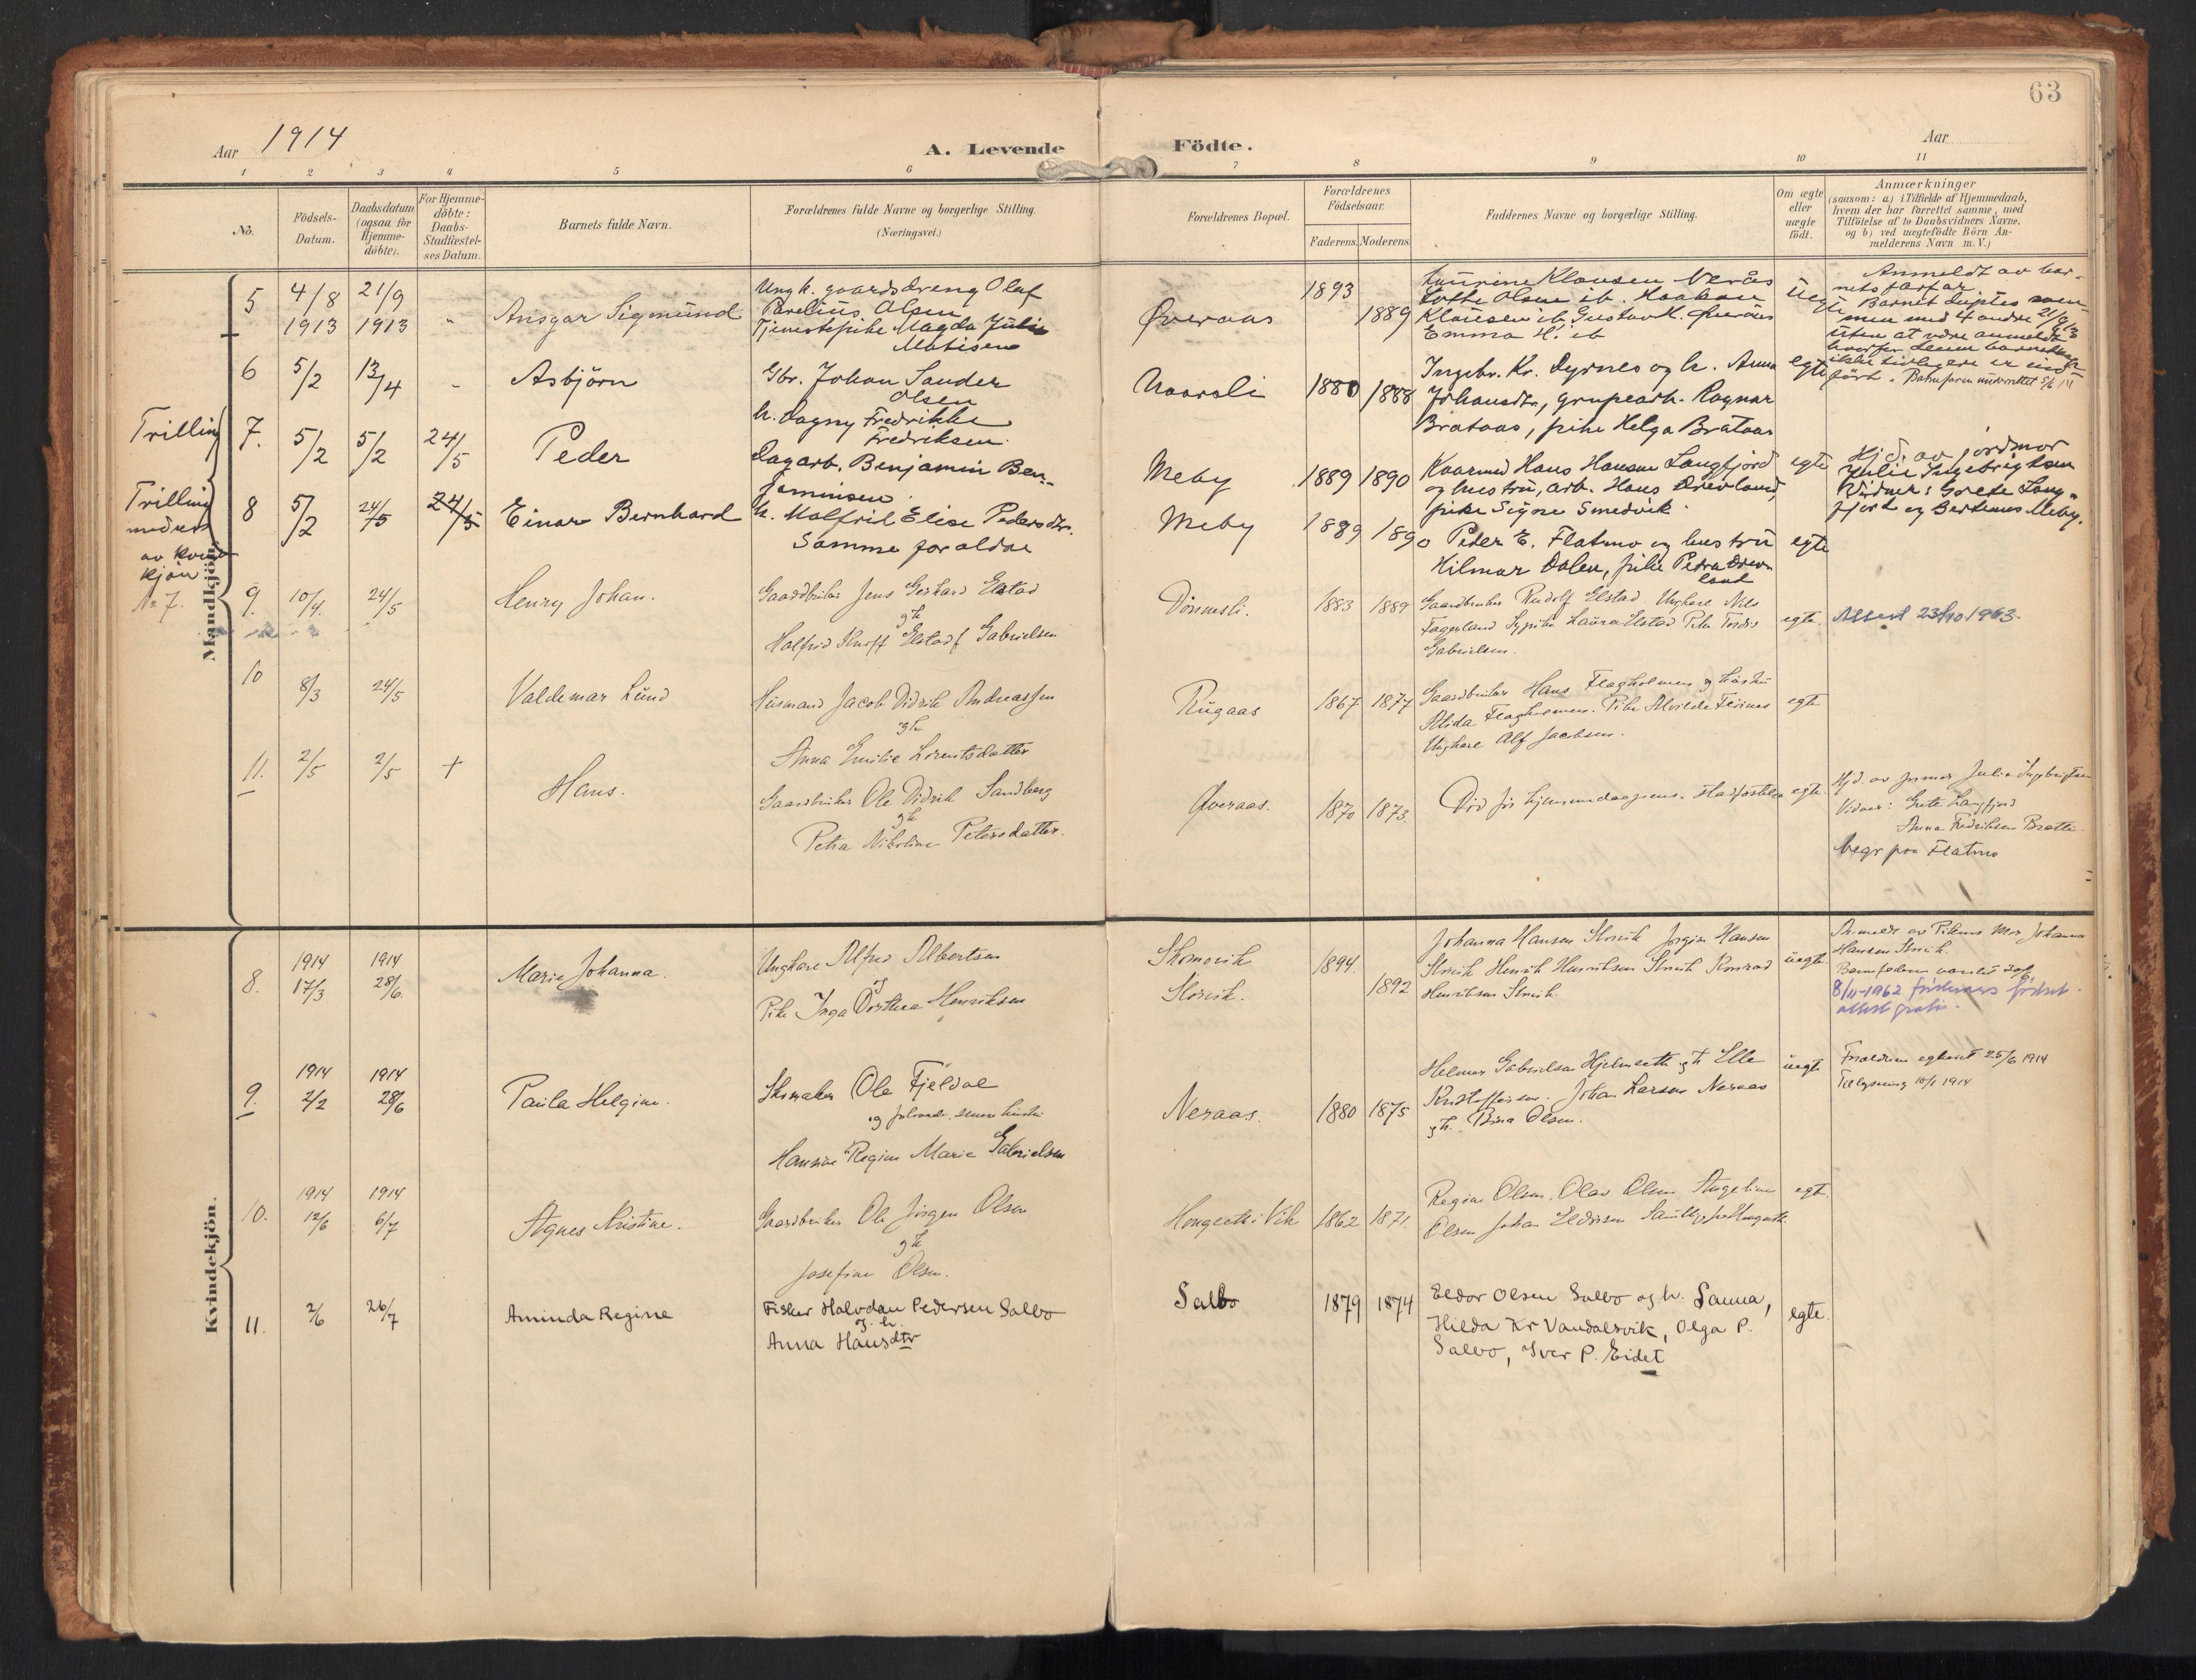 63
Aar 1914
A. Levende
Födte.
Aar
1 2 3 4 5 6 7 8 9 10 11
No.
Födsels-
Datum.
Daabsdatum
(ogsaa for
Hjemme-
döbte).
For Hjemme-
döbte:
Daabs-
Stadfæstel-
ses Datum.
Barnets fulde Navn.
Forældrenes fulde Navne og borgerlige Stilling.
(Næringsvei.)
Forældrenes Bopæl.
Forældrenes
Födselsaar.
Faderens.
Moderens.
Faddernes Navne og borgerlige Stilling.
Om ægte
eller
uægte
födt.
Anmærkninger
(saasom: a) i Tilfælde af Hjemmedaab,
hvem der har forrettet samme, med
Tilföielse af to Daabsvidners Navne,
og b) ved uægtefödte Börn An-
melderens Navn m. V.)
Mandkjön.
5
4/8
1913
21/9
1913
"
Ansgar Sigmund
Ungk. gaardsdreng Olaf
Parelius Olsen
Tjenestepike Magda Julie
Matisen
Øveraas
1893
1889
Laurine Klausen Verås
Lotte Olsen ib. Haakon
Klausen ib, Gustav H. Øveraas
Emma H. ib
Uegte
Anmeldt av bar-
nets farfar.
Barnet døptes sam-
men med 4 andre 21/9 13
uten at være anmeldt
hvorfor
ikke tidligere er ind-
ført. Barnefaren underrettet 5/6 14
6
5/2
13/4
"
Asbjörn
Gbr. Johan Sander
Olsen
h. Dagny Fredrikke
Fredriksen.
Naarsli
1880
1888
Ingebr. Kr. Dyrnes og h. Anna
Johansdtr, grupearb. Ragnar
Brataas, pike Helga Brataas
egte
Trilling
7.
5/2
5/2
24/5
Peder
Dagarb. Benjamin Ben-
jaminsen
h. Malfrid Elise Pedersdtr.
Meby
1889
1890
Kaarmed Hans Hansen Langfjord
og hustru, arb. Hans Drevland,
pike Signe Smedvik.
egte
Hjd. av jordmor
Julie Ingebrigtsen
Vidner: Grete Lang-
fjord og Bertinus Meby.
Trilling
med en
av kvinde
kjön
No 7.
8
5/2
24/5
24/5
Einar Bernhard
Samme foraldre
Meby
1889
1890
Peder E. Flatmo og hustru
Hilmar Dalen, pike Petra Drev-
land
egte
9.
10/4.
24/5
Henry Johan.
Gaardbruker Jens Gerhard Elstad
gh
Halfrid Knoff Elstad f Gabrielsen
Dönnesli.
1883
1889
Gaardbruker Rudolf Elstad Ungkare Nils
Fagerland Sypike Laura Elstad Pike Tordis
Gabrielsen.
egte.
Attest 23/10 1963.
10
8/3
24/5
Valdemar Lund
Husmand Jacob Didrik Andreassen
gh
Anna Emilie Lorentsdatter
Rugaas
1867
1877
Gaardbruker Hans Flagholmen og hustru
Alida Flagholmen. Pike Alvilde
Ungkare Alf Jacobsen.
egte
11.
2/5
2/5
+
Hans.
Gaardbruker Ole Didrik Sandberg
gh
Petra Nikoline Petersdatter.
Øveraas.
1870
1873.
Död för hjemmedaapens stadfæstelse
egte.
Hjd. av jormor Julie Ingebrigtsen
Vidner: Grete Langfjord
Anna Fredriksen Brattli.
begr paa Flatmo
Kvindekjön.
8.
1914
17/3
1914
28/6.
Marie Johanna.
Ungkare Alfred Albertsen
og
Pike Inga Dorthea Henriksen
Skomovik
Storvik.
1894.
1892
Johanna Hansen Storvik Jørgin Hansen
Storvik Henrik Henriksen Storvik Konrad
Henriksen Storvik.
uegte.
Anmeldt av Pikens Mor Johanna
Hansen Storvik.
Barnefaderen
8/11-1962 födsels
attest gratis.
9.
1914
2/2
1914
28/6
Paula Helgine.
Skomaker Ole Fjeldal
og
Hansine Regine Marie Gabrielsen
Neraas.
1880
1875
Helmer Gabrielsen Hjelmseth gh Elle
Kristoffersen. Johan Larsen Neraas
gh. Olsen.
uegte
Forældrene egteviet 25/6 1914
Tællysning 10/1 1914
10.
1914
12/6
1914
6/7
Agnes Kristine.
Gaardbruker Ole Jörgen Olsen
gh
Josefine Olsen.
Hongseth i Vik
1862
1871.
Regine Olsen, Olav Olsen, Angeline
Olsen Johan Eldorsen
egte.
11.
2/6
26/7
Aminda Regine
Fisker Halvdan Pedersen Salbo
og h.
Anna Hansdtr
Salbo
1879
1874
Eldor Olsen Salbo og h. Sanna,
Hilda Kr Vandalsvik, Olga P.
Salbo, Iver P. Eidet
egte.